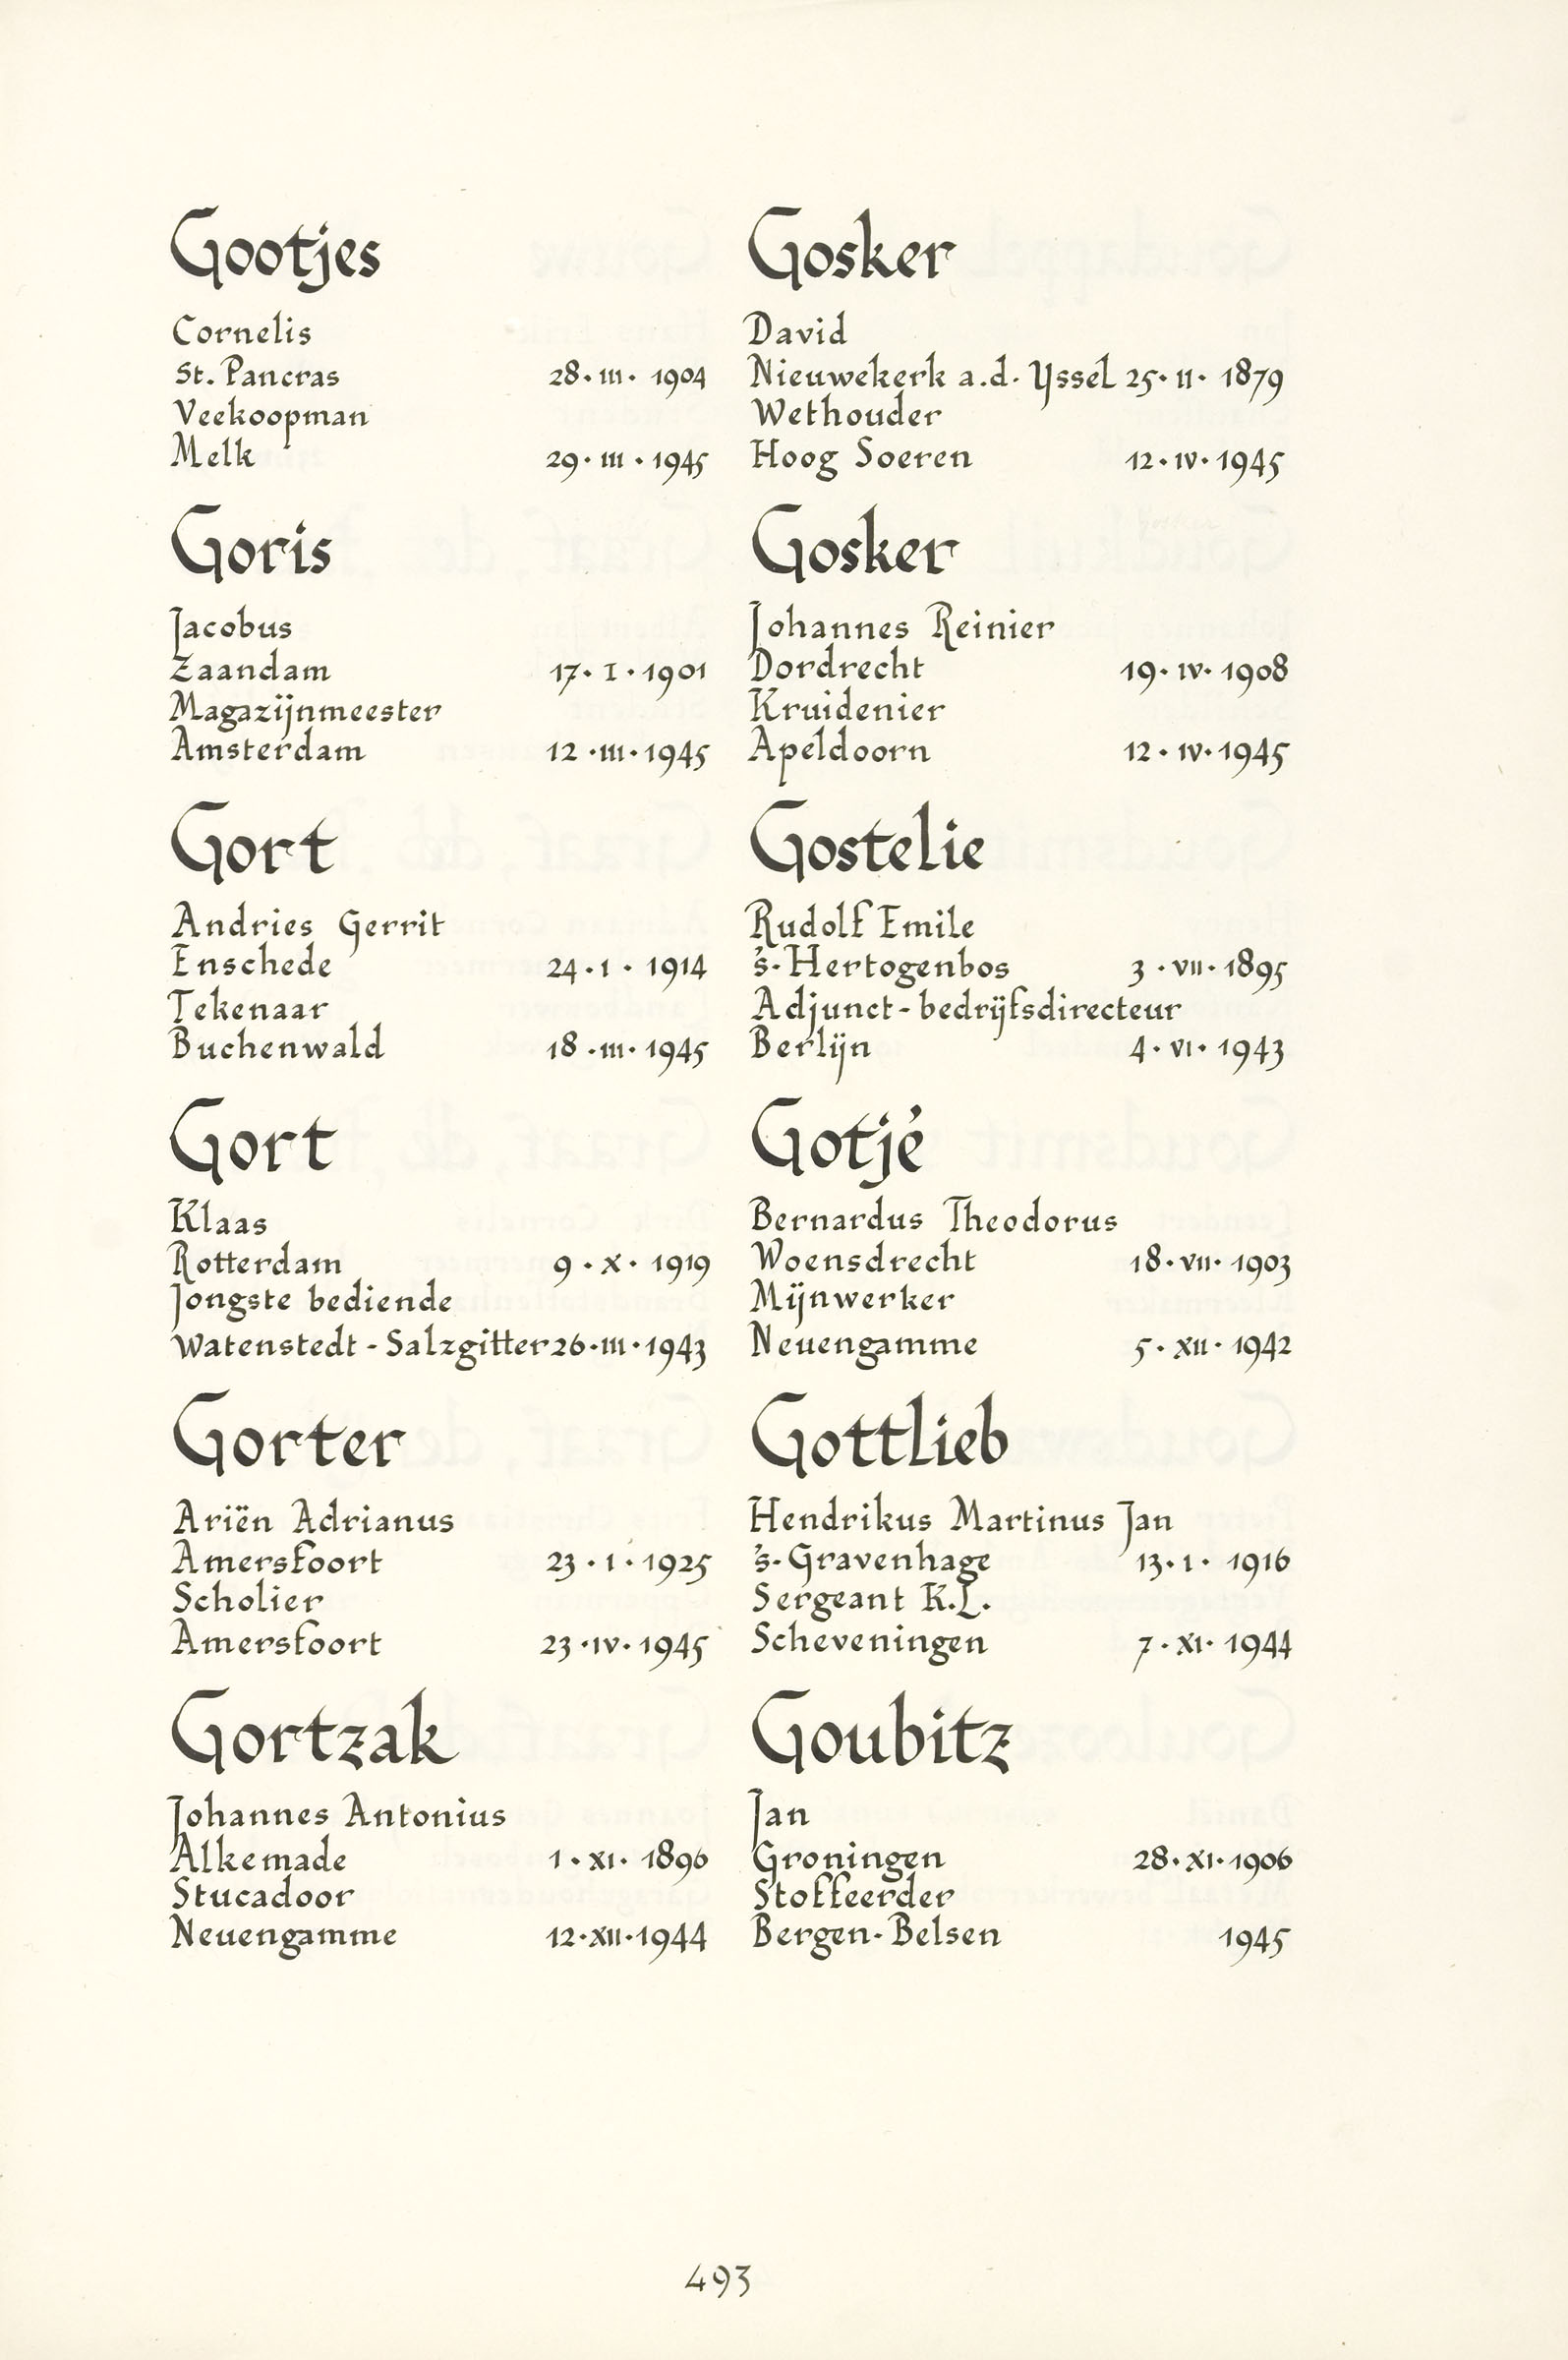 Gootjes
Cornelis
St. Pancras 28·III· 1904
Veekoopman
Melk 29·III·1945
Goris
Jacobus
Zaandam 17·I·1901
Magazijnmeester
Amsterdam 12·III·1945
Gort
Andries Gerrit
Enschede 24·I· 1914
Tekenaar
Buchenwald 18·III·1945
Gort
Klaas
Rotterdam 9·X· 1919
Jongste bediende
Watenstedt-Salzgitter 26·III·1943
Gorter
Ariën Adrianus
Amersfoort 23·I·1925
Scholier
Amersfoort 23·IV·1945
Gortzak
Johannes Antonius
Alkemade 1·XI· 1896
Stucadoor
Neuengamme 12·XII·1944
Gosker
David
Nieuwekerk a.d. Yssel 25·II· 1879
Wethouder
Hoog Soeren 12·IV·1945
Gosker
Johannes Reinier
Dordrecht 19·IV·1908
Kruidenier
Apeldoorn 12·IV·1945
Gostelie
Rudolf Emile
's-Hertogenbos 3·VII·1895
Adjunct-bedrijfsdirecteur
Berlijn 4·VI·1943
Gotjé
Bernardus Theodorus
Woensdrecht 18·VII·1903
Mijnwerker
Neuengamme 5·XII·1942
Gottlieb
Hendrikus Martinus Jan
's-Gravenhage 13·I· 1916
Sergeant K.L.
Scheveningen 7·XI· 1944
Goubitz
Jan
Groningen 28·XI·1906
Stoffeerder
Bergen-Belsen 1945
493